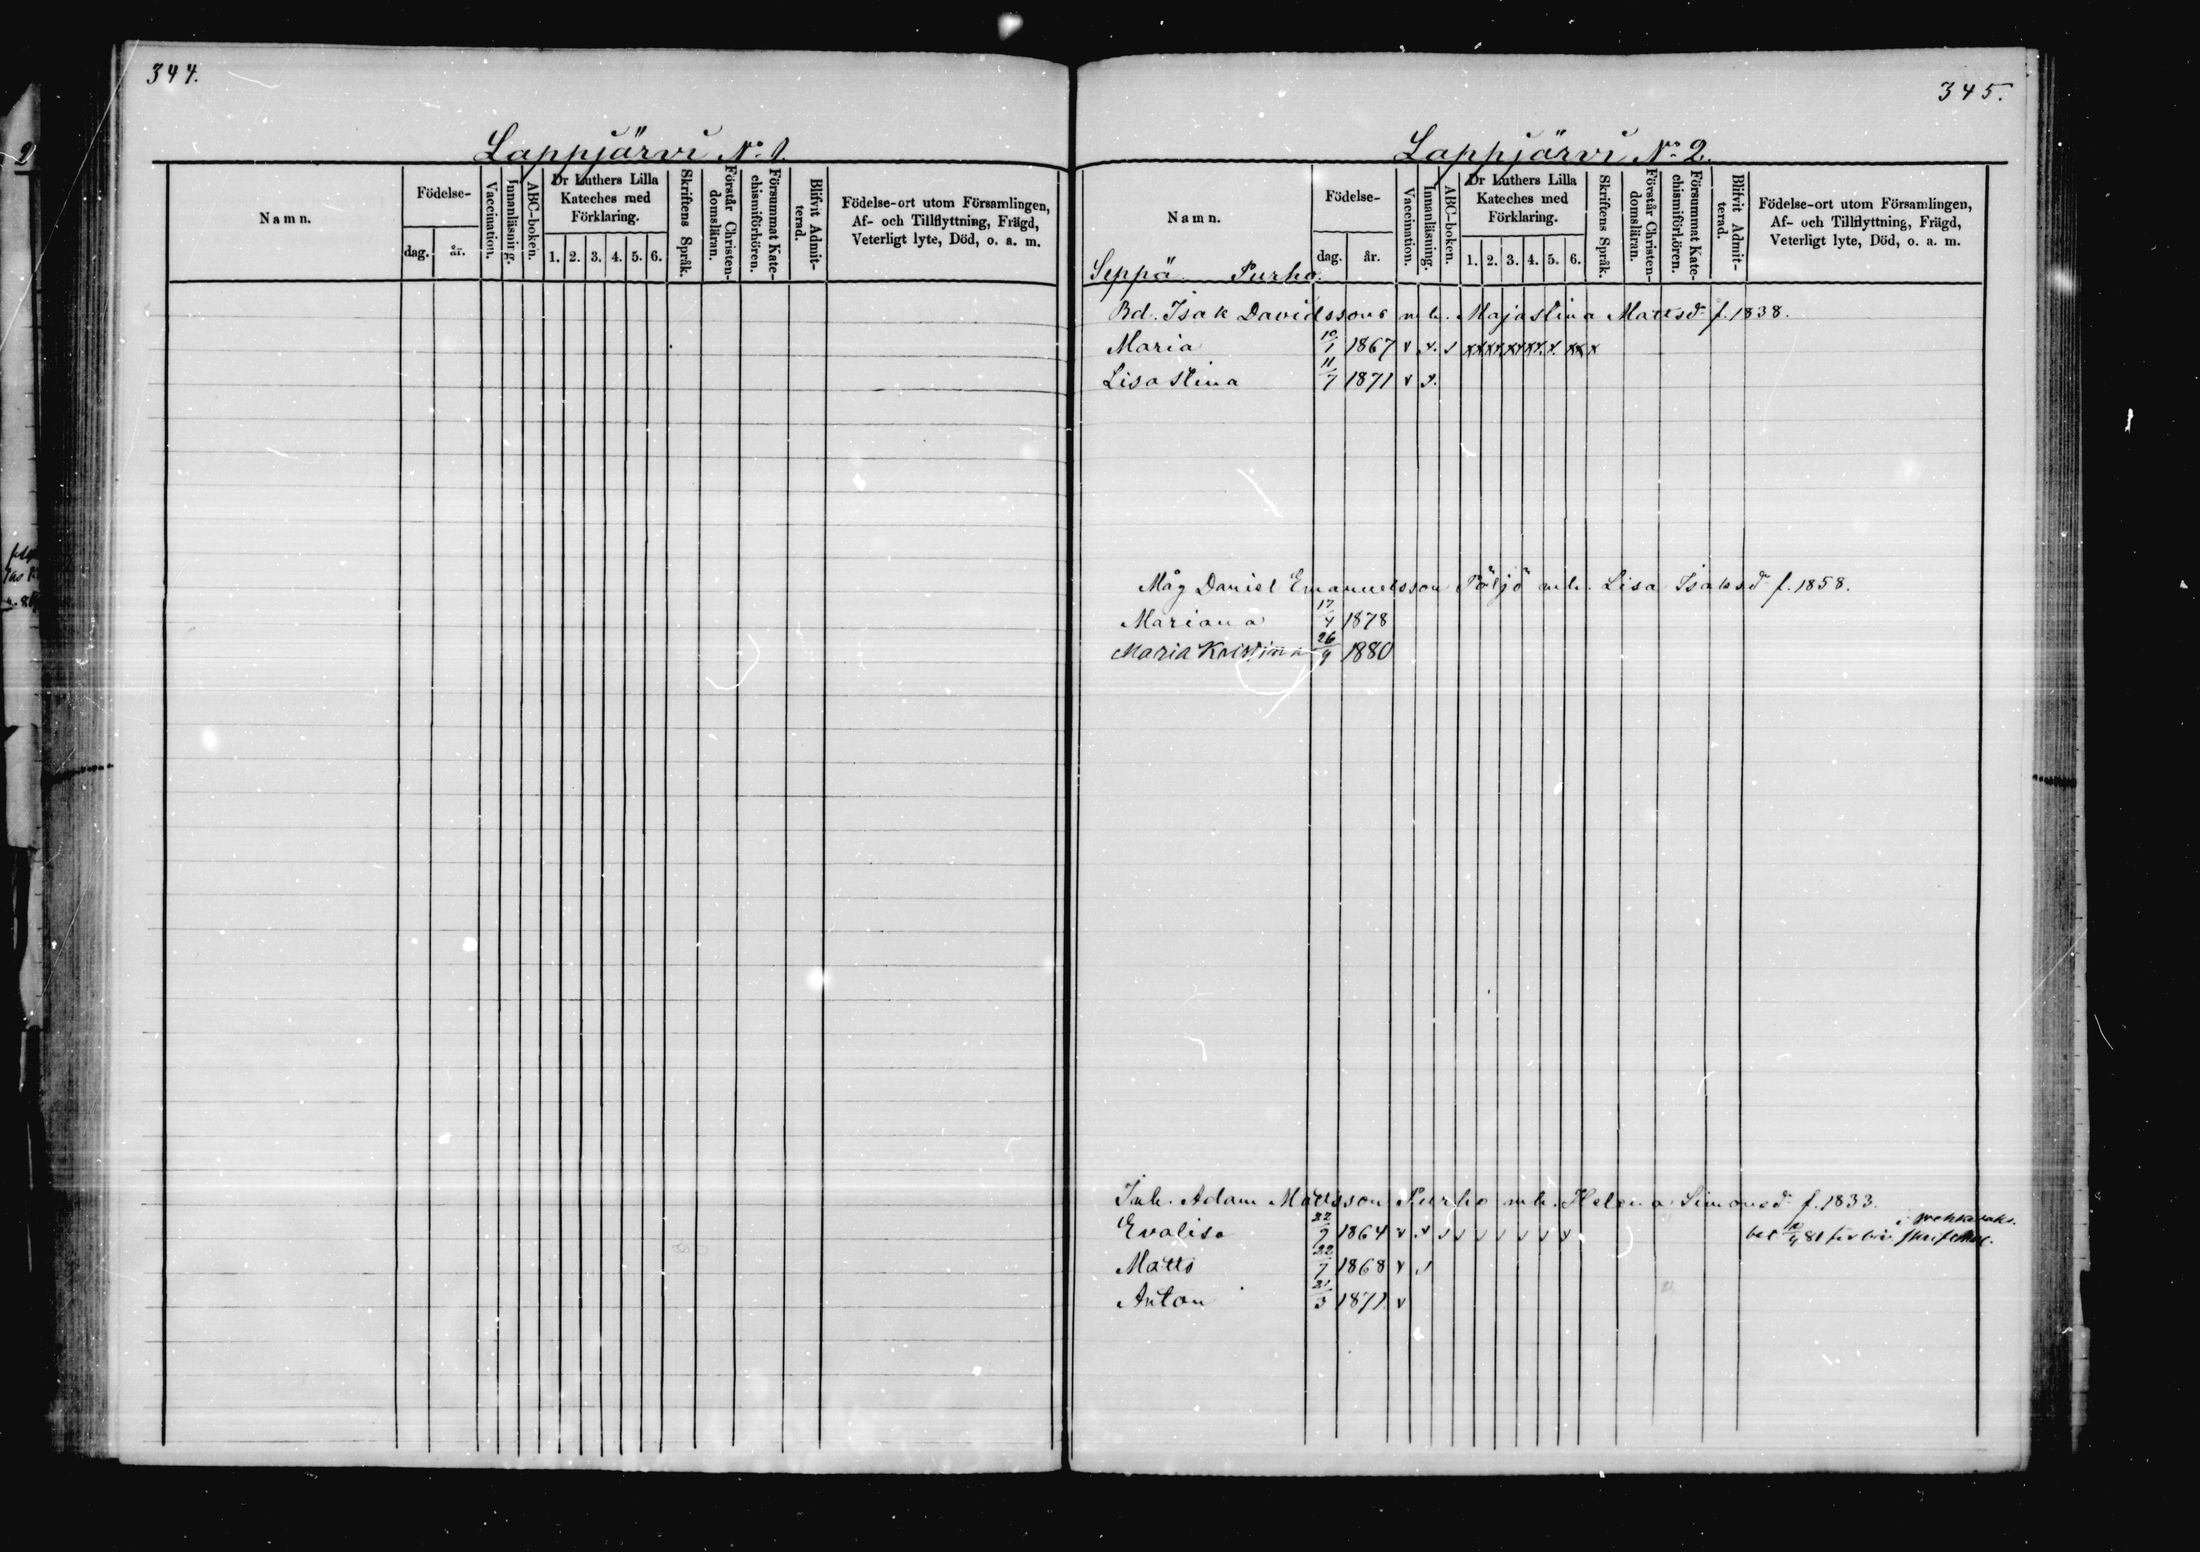 344.
Lappjärvi No 1.
Namn.
Födelse-
dag.
år.
Vaccination.
Innanläsning.
ABC-boken.
Dr Luthers Lilla
Kateches med
Förklaring.
1. 2. 3. 4. 5. 6.
Skriftens Språk.
Förstår Christen-
domsläran.
Försummat Kate-
chismiförhören.
Blifvit Admit-
terad.
Födelse-ort utom Församlingen,
Af- och Tillflyttning, Frägd,
Veterligt lyte, Död, o. a. m.
345.
Lappjärvi No 2.
Namn.
Födelse-
dag.
år.
Vaccination.
Innanläsning.
ABC-boken.
Dr Luthers Lilla
Kateches med
Förklaring.
1. 2. 3. 4. 5. 6.
Skriftens Språk.
Förstår Christen-
domsläran.
Försummat Kate-
chismiförhören.
Blifvit Admit-
terad.
Födelse-ort utom Församlingen,
Af- och Tillflyttning, Frägd,
Veterligt lyte, Död, o. a. m.
Seppä Purho.
Bd. Isak Davidssons m h. Majastina Mattsd f. 1838.
Maria 10/1 1867
Lisastina 11/7 1871
Måg Daniel Emanuelsson Pöljö mh. Lisa Isaksd f. 1858.
Mariana 17/4 1878
Maria Kristina 26/9 1880
Inh. Adam Mattsson Purho mh. Helena Simonsd f. 1833.
Evalisa 22/9 1864
bet 10/4 81 för
Matts 22/7 1868
Anton 21/3 1871